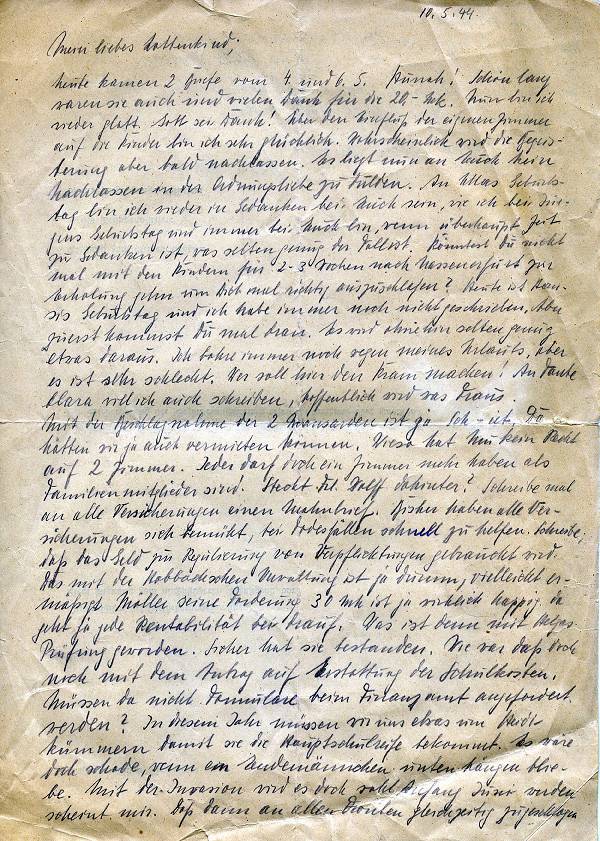 10.5.44.
Mein liebes Lottenkind,
heute kamen 2 Briefe vom 4. und 6.5. Hurrah! Schön lang
waren sie auch und vielen Dank für die 20,- Mk. Nun bin ich
wieder glatt. Gott sei Dank! Über den Einfluß der eigenen Zimmer
auf die Kinder bin ich sehr glücklich. Wahrscheinlich wird die Begei-
sterung aber bald nachlassen. Es liegt nun an Euch kein
Nachlassen in der Ordnungsliebe zu dulden. An Ullas Geburts-
tag bin ich wieder in Gedanken bei Euch sein, wie ich bei
Geburtstag und immer bei Euch bin, wenn überhaupt Zeit
zu Gedanken ist, was selten genug der Fall ist. Könntest Du nicht
mal mit den Kindern für 2-3 Wochen nach Wasserkurt zur
Erholung gehn um Dich mal richtig auszuschlafen? Heute ist
Geburtstag und ich habe immer noch nicht geschrieben. Aber
zuerst kommst Du mal dran. Es wird ohnehin selten genug
etwas daraus. Ich bohre immer noch wegen meines Urlaubs, aber
es ist sehr schlecht. Wer soll hier den Kram machen! An Tante
Klara will ich auch schreiben, hoffentlich wird was draus.
Mit der Beschlagnahme der 2 Mansarden ist ja Sch-iet. Da
hätten wir ja auch vermieten können. Wieso hat kein Recht
auf 2 Zimmer. Jeder darf doch ein Zimmer mehr haben als
Familienmitglieder sind. Steckt Frl. Wolff dahinter? Schreibe mal
an alle Versicherungen einen Mahnbrief. Bisher haben alle Ver-
sicherungen sich bemüht, bei Todesfällen schnell zu helfen. Schreibe,
daß das Geld zur Regulierung von Verpflichtungen gebraucht wird.
Das mit der Verwaltung ist ja dumm, vielleicht er-
mäßigt Möller seine Forderung 30 Mk ist ja wirklich happig. da
geht ja jede Rentabilität bei drauf. Was ist denn mit Helgas
Prüfung geworden. Sicher hat sie bestanden. Wie war das doch
noch mit dem Antrag auf Erstattung der Schulkosten.
Müssen da nicht Formulare beim Finanzamt angefordert
werden? In diesem Jahr müssen wir uns etwas um Heidi
kümmern damit sie die Hauptschulreife bekommt. Es wäre
doch schade, wenn ein Lindemännchen unten hängen blie-
be. Mit der Invasion wird es doch wohl Anfang Juni werden
scheint mir. Daß dann an allen Fronten gleichzeitig zugeschlagen